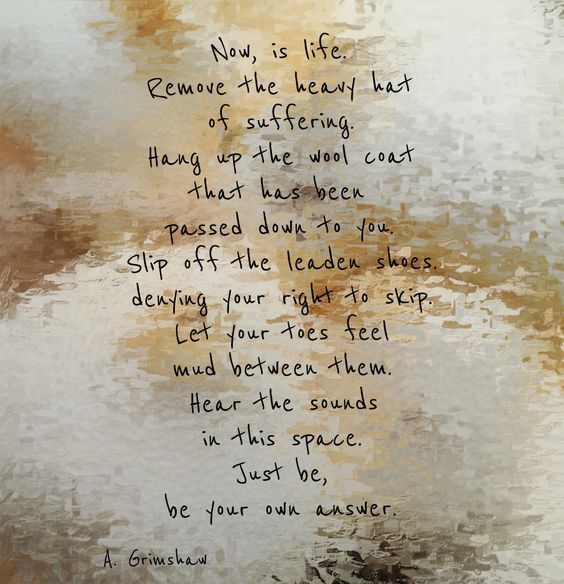 Now, is life.
Remove the heavy hat
of suffering.
Hang up the wool coat
that has been
passed down to you.
Slip off the leaden shoes.
denying your right to skip.
Let your toes feel
mud between them.
Hear the sounds
in this space.
Just be,
be your own answer.
A. Grimshaw